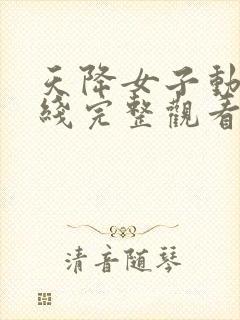 天降女子動
綫完整觀看
清音随琴